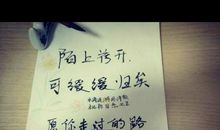 陌上花开
可缓缓归矣
愿你走过的路